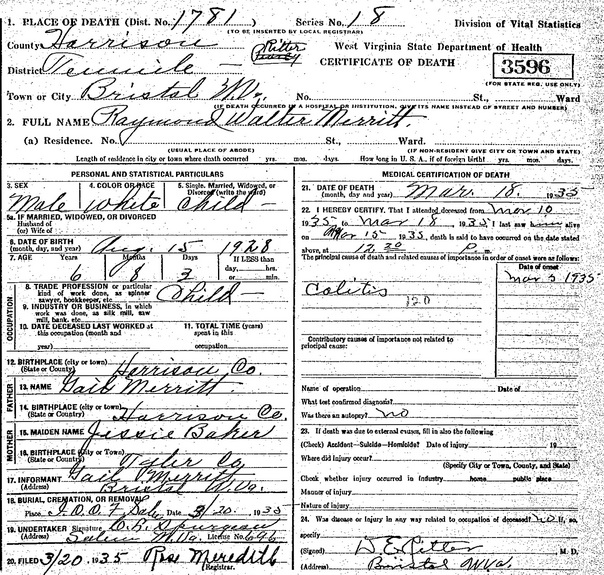 1. PLACE OF DEATH (Dist. No. 1781) Series No. 18 Division of Vital Statistics
(TO BE INSERTED BY LOCAL REGISTRAR)
County Harrison Ritter West Virginia State Department of Health
CERTIFICATE OF DEATH
District Tenmile 3596
(FOR STATE REG. USE ONLY)
Town or City Bristol W.Va. No. St., Ward
(IF DEATH OCCURRED IN A HOSPITAL OR INSTITUTION, GIVE ITS NAME INSTEAD OF STREET AND NUMBER)
2. FULL NAME Raymond Walter Merritt
(a) Residence. No. St., Ward.
(USUAL PLACE OF ABODE) (IF NON-RESIDENT GIVE CITY OR TOWN AND STATE)
Length of residence in city or town where death occurred yrs. mos. days. How long in U. S. A., if of foreign birth? yrs. mos. days.
PERSONAL AND STATISTICAL PARTICULARS
3. SEX 4. COLOR OR RACE 5. Single, Married, Widowed, or Divorced (write the word)
Male White Child
5a. IF MARRIED, WIDOWED, OR DIVORCED
Husband of
(or) Wife of
6. DATE OF BIRTH
(month, day, and year) Aug. 15 1928
7. AGE Years Months Days If LESS than
6 8 3 day, hrs.
or min.
OCCUPATION
8. TRADE PROFESSION or particular
kind of work done, as spinner
sawyer, bookkeeper, etc. Child
9. INDUSTRY OR BUSINESS, in which
work was done, as silk mill, saw
mill, bank, etc.
10. DATE DECEASED LAST WORKED at
this occupation (month and
year)
11. TOTAL TIME (years)
spent in this
occupation
12. BIRTHPLACE (city or town)
(State or County) Harrison Co
FATHER
13. NAME Gail Merritt
14. BIRTHPLACE (city or town)
(State or Country) Harrison Co.
MOTHER
15. MAIDEN NAME Jessie Baker
16. BIRTHPLACE (city or town)
(State or Country) Tyler Co
17. INFORMANT Gail Merritt
(Address) Bristol W.Va.
18. BURIAL, CREMATION, OR REMOVAL
Place I.O.O.F. Date 3/20 1935
19. UNDERTAKER Signature
(Address) Salem W.Va. License No. 696
20. FILED 3/20 1935 Rose Meredith
Registrar.
MEDICAL CERTIFICATION OF DEATH
21. DATE OF DEATH
(month, day and year) Mar. 18. 1935
22. I HEREBY CERTIFY, That I attended deceased from Mar 10
1935 to Mar 18, 1935, I last saw him alive
on Mar 15 1935, death is said to have occurred on the date stated
above, at 12.30 P m.
The principal cause of death and related causes of importance in order of onset were as follows:
Date of onset
Mar 5 1935
Colitis
120
Contributory causes of importance not related to
principal cause:
Name of operation Date of
What test confirmed diagnosis?
Was there an autopsy? No
23. If death was due to external causes, fill in also the following
(Check) Accident—Suicide—Homicide? Date of injury 19
Where did injury occur?
(Specify City or Town, County, and State)
Check whether injury occurred in Industry home public place
Manner of injury
Nature of injury
24. Was disease or injury in any way related to occupation of deceased? No If, so,
specify
(Signed) D E Ritter M. D.
(Address) Bristol W.Va.